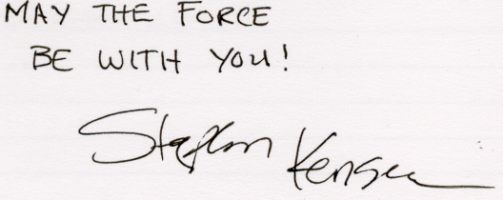 MAY THE FORCE
BE WITH YOU!
Stephen Kensen